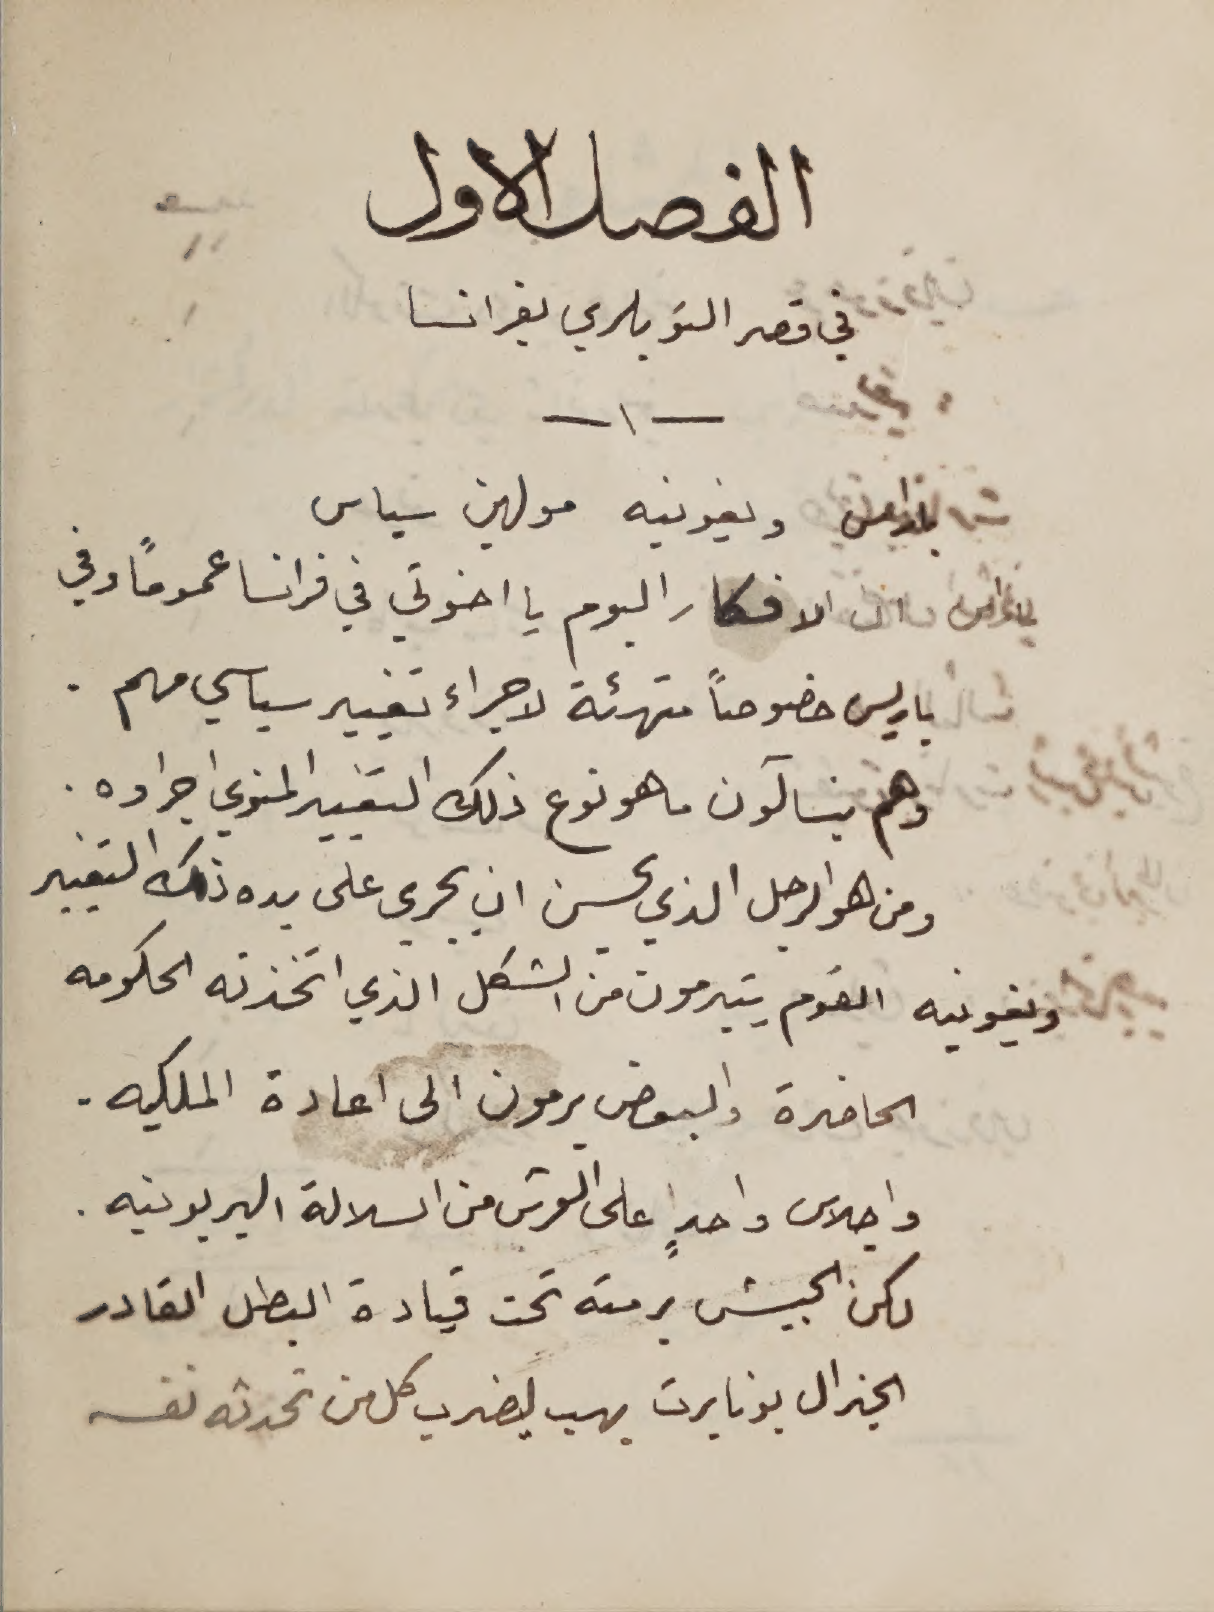 الفصل الاول
في قصر التويلري بفرانسا
— ١ —
باراس وبغونيه مولهن سياس
باراس ان الافكار اليوم يا اخوتي في فرانسا عموماً وفي
باريس خصوصاً متهيئة لاجراء تغيير سياسي مهم .
وهم يتسآلون ما هو نوع ذلك التغيير المنوي اجراوه .
ومن هو الرجل الذي يحسن ان يجري على يده ذلك التغيير
وبغونيه القوم يتبرمون من الشكل الذي اتخذته الحكومه
الحاضرة والبعض يرمون الى اعادة الملكيه .
واجلاس واحدٍ على العرش من السلالة البربونيه .
لكن الجيش برمته تحت قيادة البطل القادر
الجنرال بونابرت يهب ليضرب كل من تحدثه نفسه